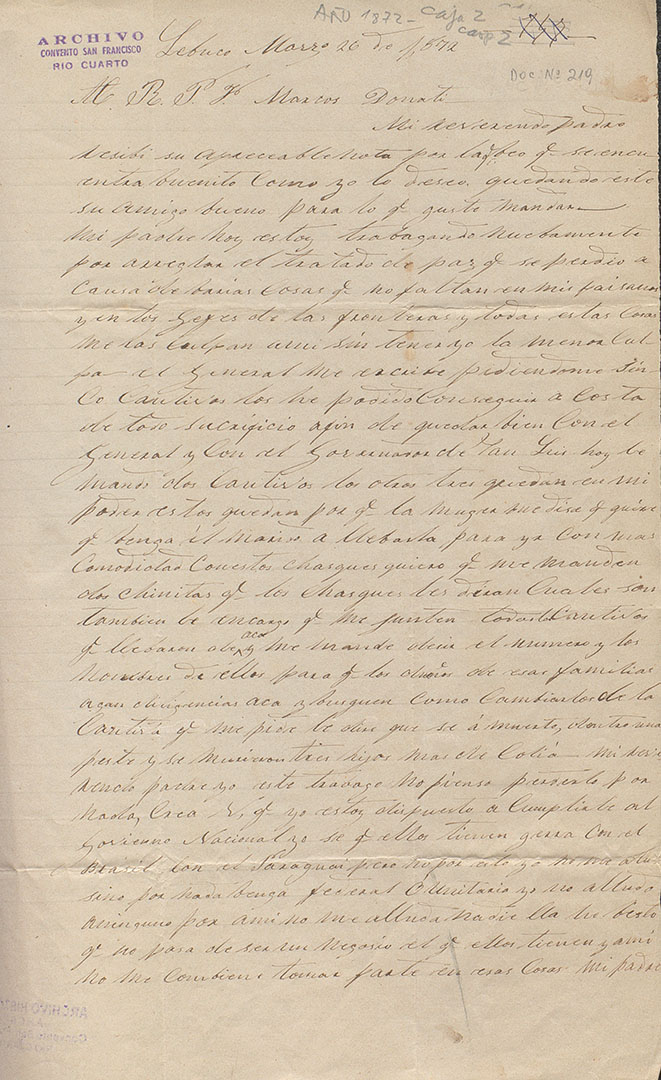 AÑO 1872 - caja 2
carp 2
ARCHIVO
CONVENTO SAN FRANCISCO
RIO CUARTO
Doc. Nº 219
Lebuco Marzo 26 de 1872
M. R. P. Fr Marcos Donati
Mi reverendo padre
resibi su apreceable nota por la q beo q se encu
entra buenito como yo lo deseo, quedando este
su amigo bueno para lo q guste mandar
Mi padre hoy estoy travagando nuebamente
por arreglar el tratado de paz q se perdio a
Causa de barias cosas q no faltan en mis paisanos
y en los gefes de las fronteras y todas estas cosas
me las culpan a mi sin tener yo la menor cul
pa el General me escribe pidiendome sin
co cautivos los he podido conseguir a costa
de todo sucrificio afin de quedar bien con el
General y con el Governador de San Luis hoy le
mando dos cautivos los otros tres quedan en mi
poder estos quedan por q la muger me dise q quiere
q benga el marido a llebarla para yr con mas
comodidad con estos chasques quiero q me manden
dos chinitas q los chasques les diran cuales son
tambien le encargo q me junten todos los cautivos
q llebaron de aca y me mande decir el numero y los
nombres de ellos para q los dueños de esas familias
agan diligencias aca y busquen como cambiarlos de la
cautiva q me pide le dire que se á muerto, entro una
peste y se murieron tres hijos mas de Coliá mi reve
rendo padre yo este travago no pienso perderlo por
nada, Crea V. q yo estoy dispuesto a cumplirle al
Govierno Nacional yo se q ellos tienen gerra con el
Brasil con el Paraguai pero no por eso yo
sino por nada benga federal o unitario yo no alludo
a ninguno por a mi no me alluda nadie lla he bisto
q no pasa de ser un negosio el q ellos tienen y a mi
no me combiene tomar parte en esas cosas mi padre